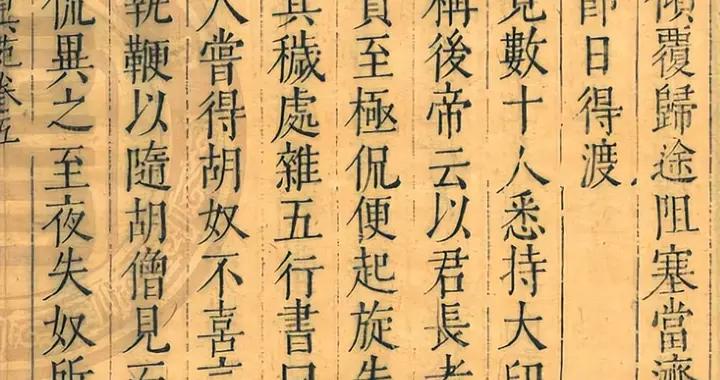 傾覆歸途阻塞當濟
即日得渡
見數十人悉持大印
稱後帝云以君長者
貴至極侃便起旋失
其穢處雜五行書曰
人嘗得胡奴不喜言
執鞭以隨胡僧見而
侃異之至夜失奴所
異苑卷五